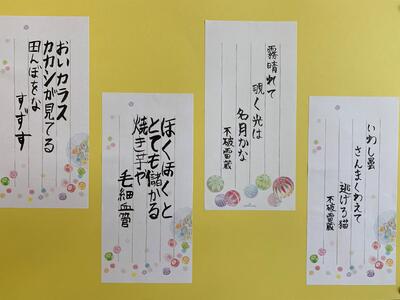 いわし曇
さんまくわえて
逃げる猫
不破雷蔵
霧晴れて
覗く光は
名月かな
不破雷蔵
ほくほくと
とても儲かる
焼き芋や
毛細血管
おいカラス
カカシが見てる
田んぼをな
すずす